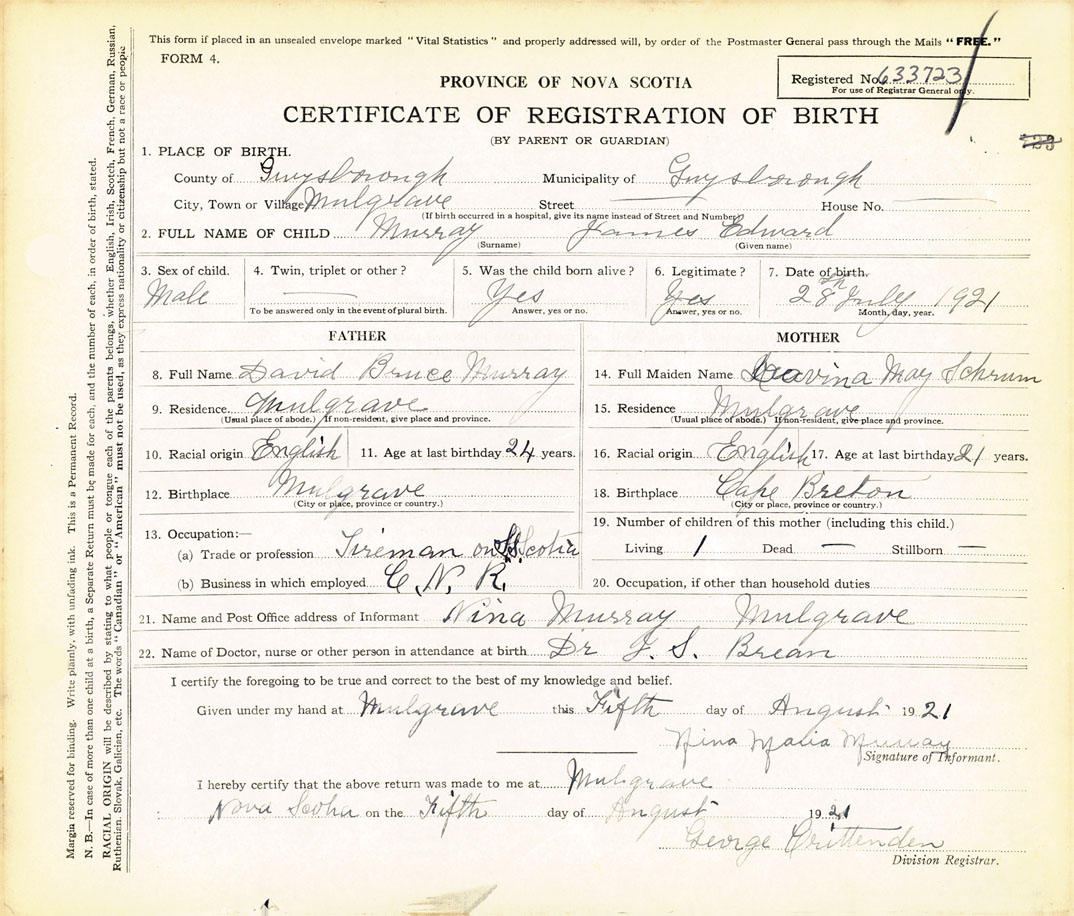 This form if placed in an unsealed envelope marked "Vital Statistics" and properly addressed will, by order of the Postmaster General pass through the Mails "FREE."
FORM 4.
Registered No. 633723
For use of Registrar General only.
PROVINCE OF NOVA SCOTIA
CERTIFICATE OF REGISTRATION OF BIRTH
(BY PARENT OR GUARDIAN)
1. PLACE OF BIRTH.
County of Guysborough Municipality of Guysborough
City, Town or Village Mulgrave Street House No.
(If birth occurred in a hospital, give its name instead of Street and Number)
2. FULL NAME OF CHILD Murray James Edward
(Surname) (Given name)
3. Sex of child. 4. Twin, triplet or other? 5. Was the child born alive? 6. Legitimate? 7. Date of birth.
Male — Yes Yes 28th July 1921
To be answered only in the event of plural birth. Answer, yes or no. Answer, yes or no. Month, day, year.
FATHER MOTHER
8. Full Name David Bruce Murray 14. Full Maiden Name May Schrum
9. Residence Mulgrave 15. Residence Mulgrave
(Usual place of abode.) If non-resident, give place and province. (Usual place of abode.) If non-resident, give place and province.
10. Racial origin English 11. Age at last birthday 24 years. 16. Racial origin English 17. Age at last birthday 21 years.
12. Birthplace Mulgrave 18. Birthplace Cape Breton
(City or place, province or country.) (City or place, province or country.)
13. Occupation:— 19. Number of children of this mother (including this child.)
(a) Trade or profession Fireman on S.S. Scotia Living 1 Dead — Stillborn —
(b) Business in which employed C. N. R. 20. Occupation, if other than household duties
21. Name and Post Office address of Informant Nina Murray Mulgrave
22. Name of Doctor, nurse or other person in attendance at birth Dr. S. Brean
I certify the foregoing to be true and correct to the best of my knowledge and belief.
Given under my hand at Mulgrave this Fifth day of August 1921
Nina Maria Murray
Signature of Informant.
I hereby certify that the above return was made to me at Mulgrave
Nova Scotia on the Fifth day of August 1921
George Crittenden
Division Registrar.
Margin reserved for binding. Write plainly, with unfading ink. This is a Permanent Record.
N. B.—In case of more than one child at a birth, a Separate Return must be made for each, and the number of each, in order of birth, stated.
RACIAL ORIGIN will be described by stating to what people or tongue each of the parents belongs, whether English, Irish, Scotch, French, German, Russian,
Ruthenian, Slovak, Galician, etc. The words "Canadian" or "American" must not be used, as they express nationality or citizenship but not a race or people